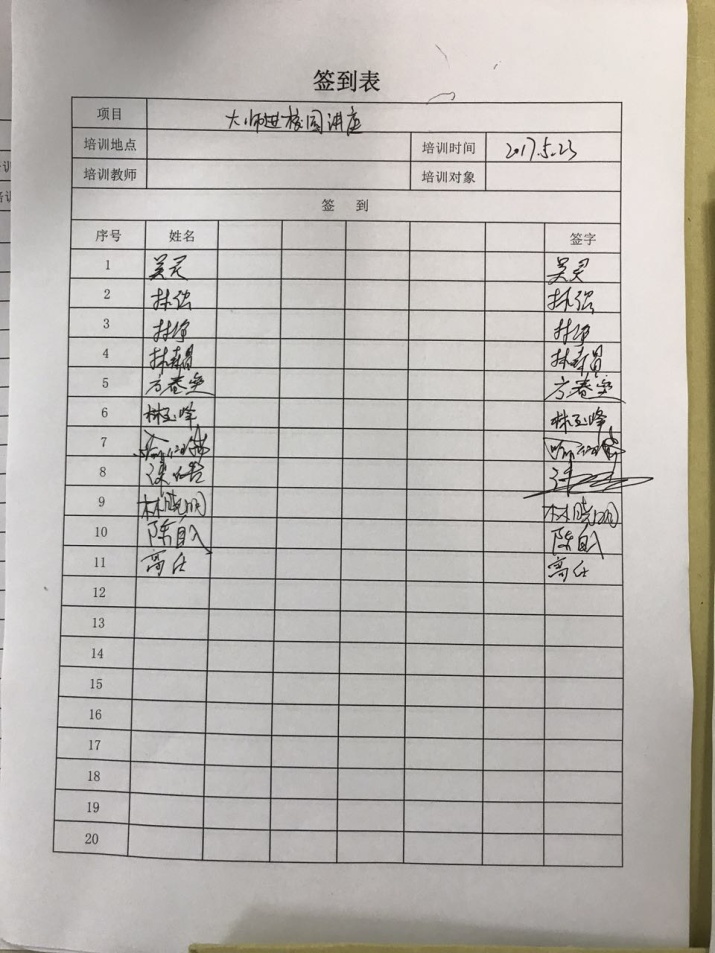 签到表
项目 大师进校园讲座
培训地点 培训时间 2017.5.23
培训教师 培训对象
签 到
序号 姓名 签字
1 吴灵 吴灵
2 林强 林强
3
4 林寿员 林寿员
5 方春
6 林玉峰 林玉峰
7
8
9 林晓明 林晓明
10 陈自 陈自
11 高仕 高仕
12
13
14
15
16
17
18
19
20